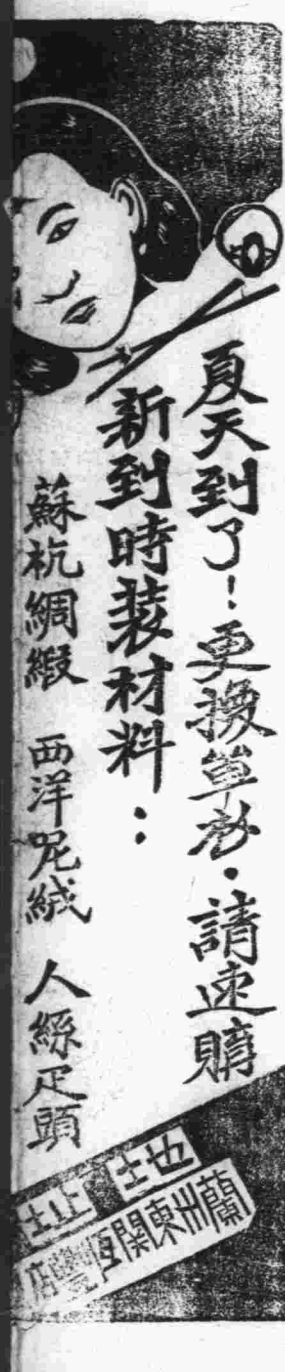 夏天到了!更換單衫·請速購
新到時装材料:
蘇杭綢緞 西洋呢絨 人絲疋頭
地址
蘭州東關恆豐店